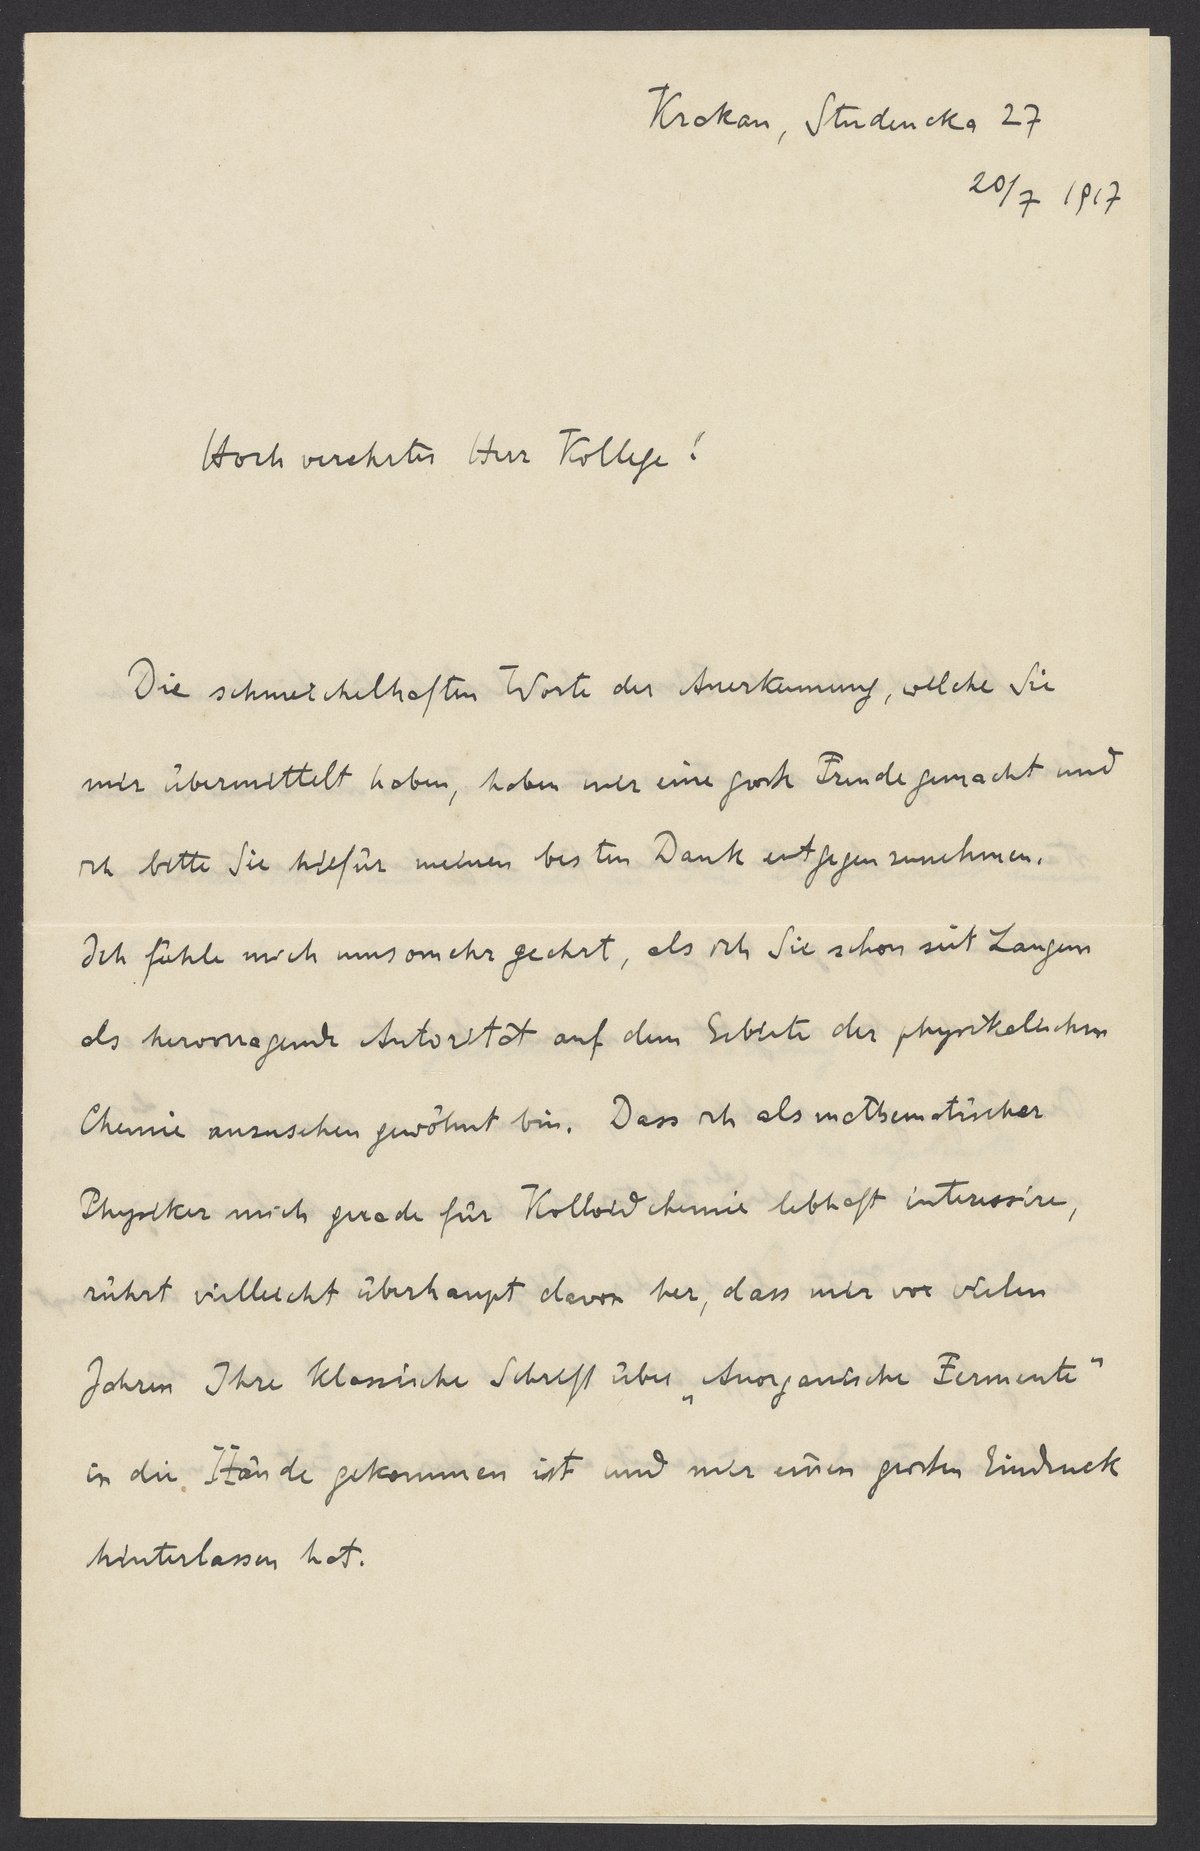 Krakau, Studencka 27
20/7 1917
Hochverehrter Herr Kollege!
Die schmeichelhaften Worte der Anerkennung, welche Sie
mir übermittelt haben, haben mir eine große Freude gemacht und
ich bitte Sie hiefür meinen besten Dank entgegenzunehmen.
Ich fühle mich umsomehr geehrt, als ich Sie schon seit Langem
als hervorragende Autorität auf dem Gebiete der physikalischen
Chemie anzusehen gewöhnt bin. Dass ich als mathematischer
Physiker mich gerade für Kolloidchemie lebhaft interessire,
rührt vielleicht überhaupt davon her, dass mir vor vielen
Jahren Ihre klassische Schrift über „Anorganische Fermente"
in die Hände gekommen ist und mir einen großen Eindruck
hinterlassen hat.